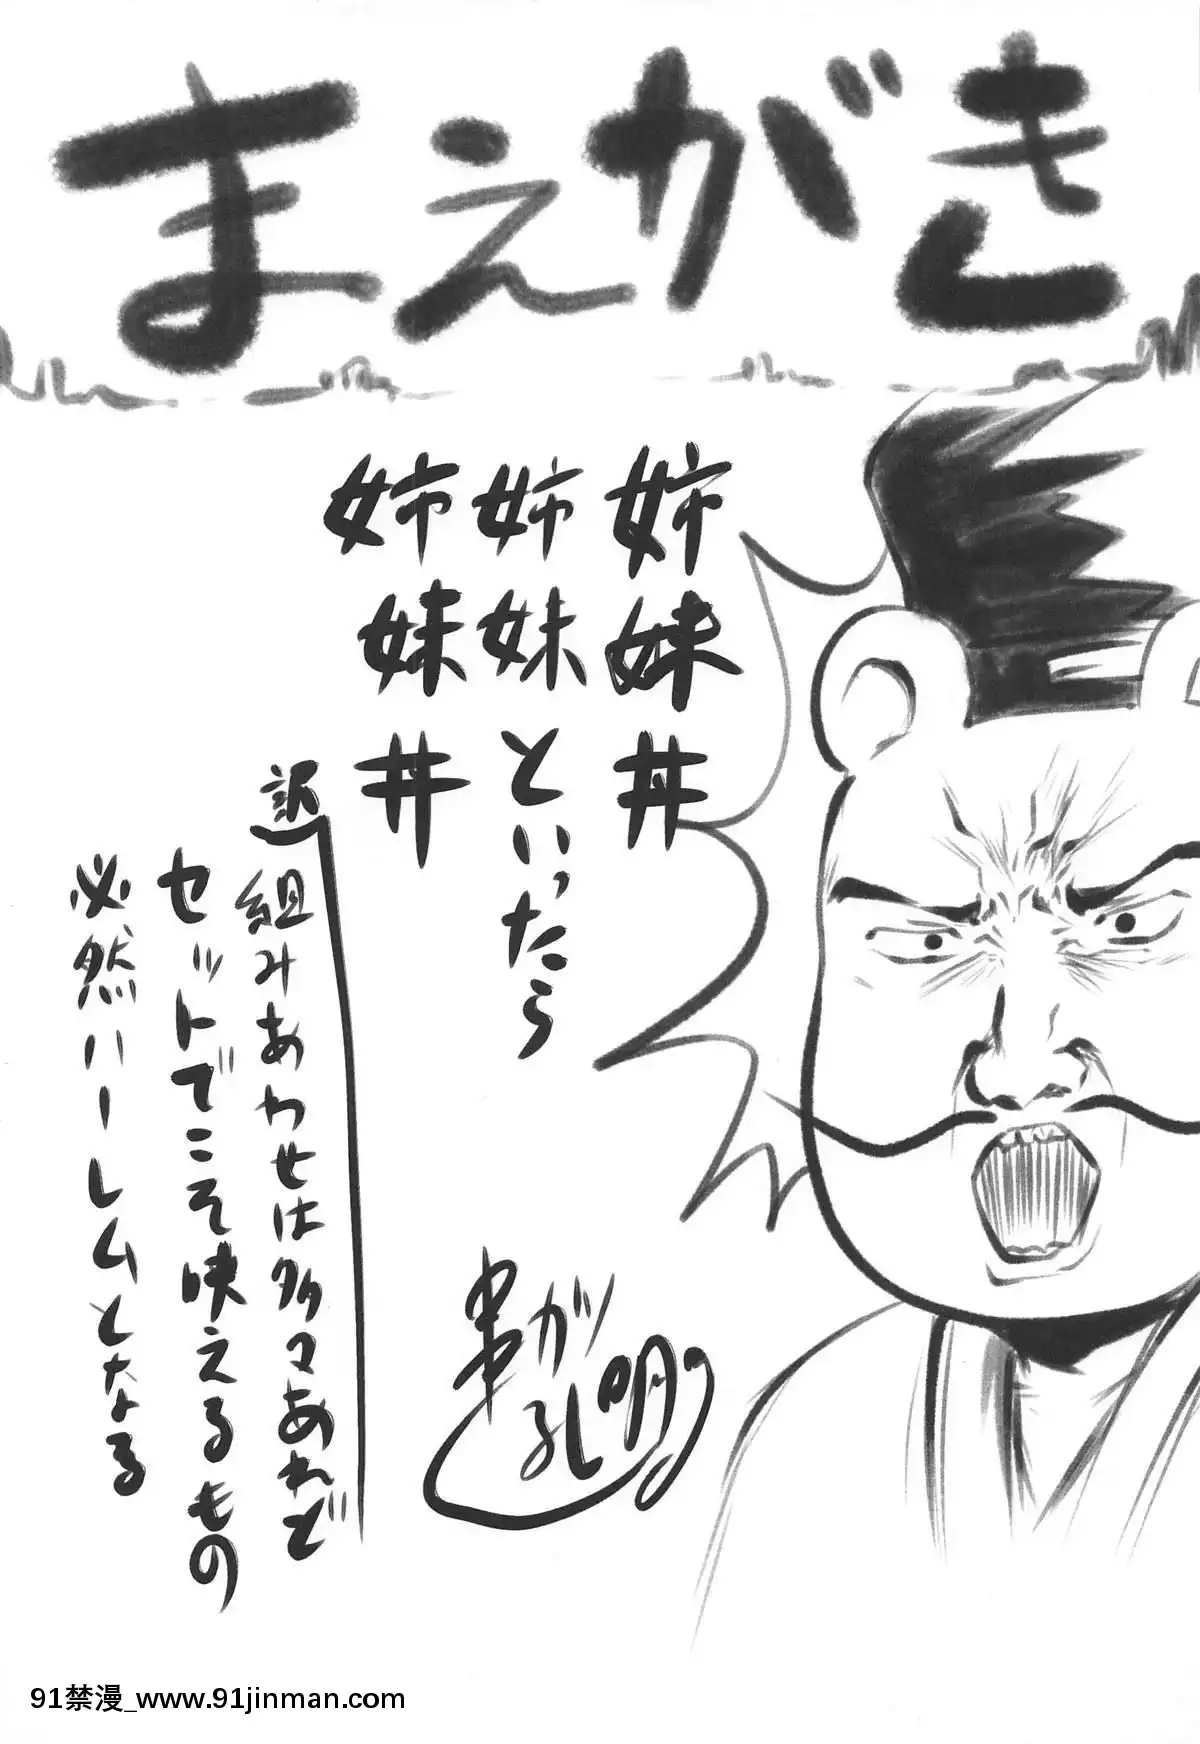 まえがき
姉妹丼
姉妹といったら
姉妹丼
訳
組みあわせは多々あれど
セットでこそ映えるもの
必然ハーレムとなる
串が孔明
91禁漫_www.91jinman.com